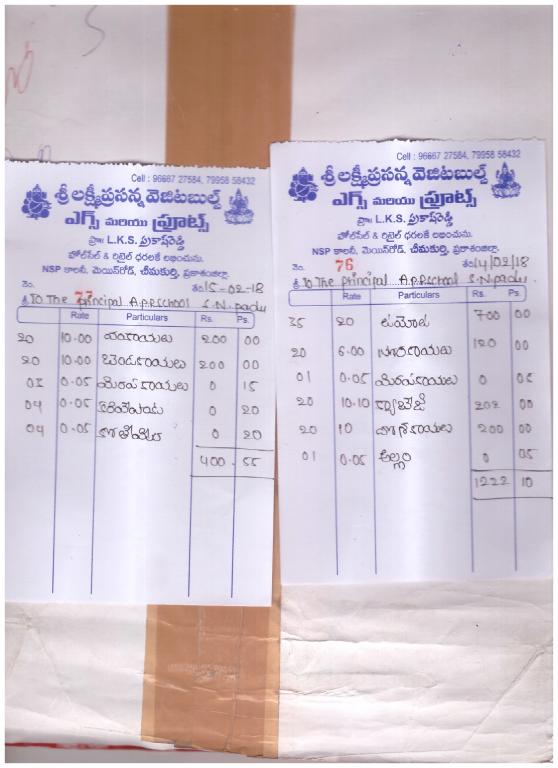 Cell : 96667 27584, 79958 58432
శ్రీ లక్ష్మీప్రసన్న వెజిటబుల్స్
ఎగ్స్ మరియు ఫ్రూట్స్
ప్రొః L.K.S. ప్రకాష్‌రెడ్డి
హోల్‌సేల్ & రిటైల్ ధరలకే లభించును.
NSP కాలనీ, మెయిన్‌రోడ్, చీమకుర్తి, ప్రకాశంజిల్లా.
నెం. 77 తేది 15-02-18
శ్రీ To The principal A.P.R school S.N.padu
Rate Particulars Rs. Ps.
20 10.00 వంకాయలు 200 00
20 10.00 బెండకాయలు 200 00
03 0.05 మిరపకాయలు 0 15
04 0.05 కరివేపాకు 0 20
04 0.05 కొతిమీర 0 20
400 55
Cell : 96667 27584, 79958 58432
శ్రీ లక్ష్మీప్రసన్న వెజిటబుల్స్
ఎగ్స్ మరియు ఫ్రూట్స్
ప్రొః L.K.S. ప్రకాష్‌రెడ్డి
హోల్‌సేల్ & రిటైల్ ధరలకే లభించును.
NSP కాలనీ, మెయిన్‌రోడ్, చీమకుర్తి, ప్రకాశంజిల్లా.
నెం. 76 తేది 14/02/18
శ్రీ To The principal A.P.R school S.N.padu
Rate Particulars Rs. Ps.
35 20 టమోట 700 00
20 6.00 120 00
01 0.05 మిరపకాయలు 0 05
20 10.10 క్యాబేజీ 202 00
20 10 దోసకాయలు 200 00
01 0.05 అల్లం 0 05
1222 10